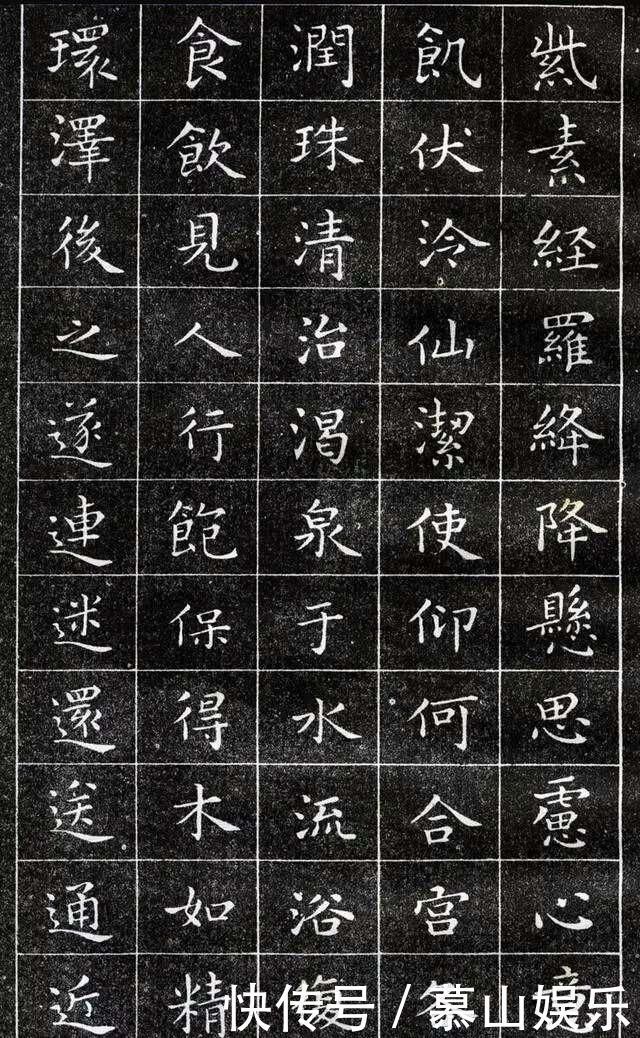 紫素経羅絳降懸思慮心意
飢伏泠仙潔使仰何合宮
潤珠清治渴泉于水流浴
食飲見人行飽保得木如精
環澤後之遂連迷還送通近
快传号 / 慕山娱乐